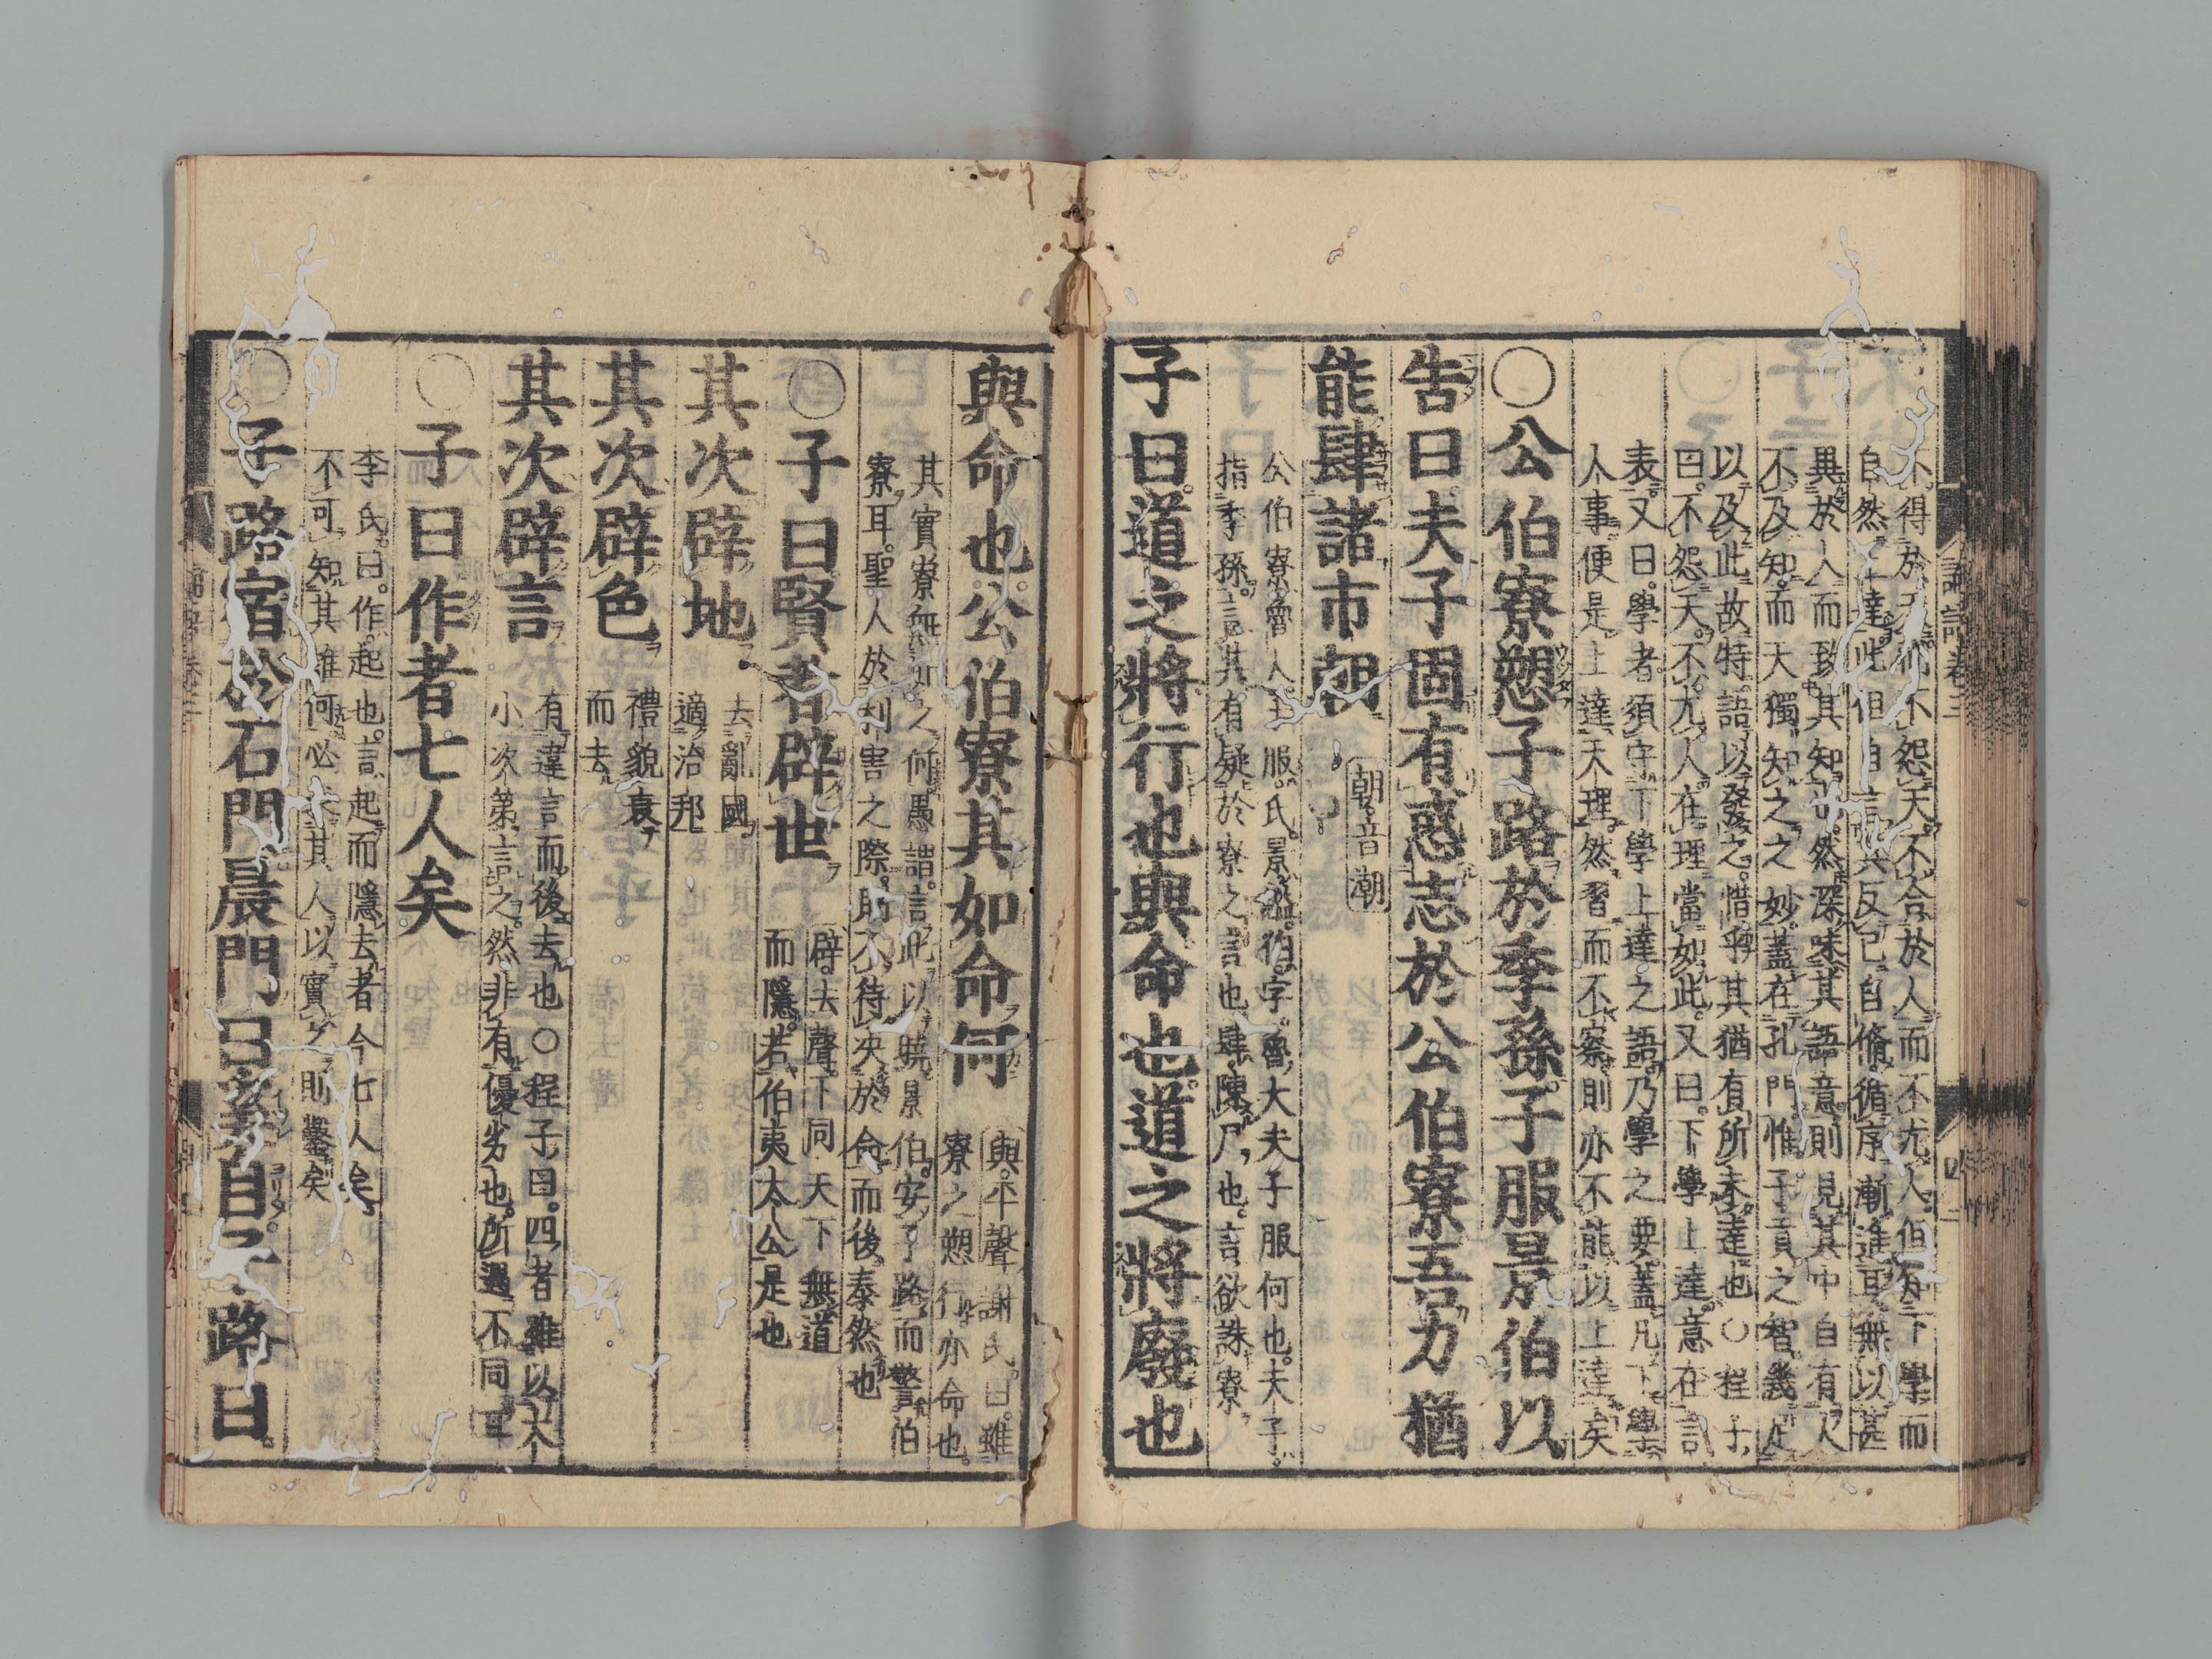 不得於天而不怨天不合於人而不尤人但知下學而
自然上達此但自言其反己自脩循序漸進耳無以甚
異於人而致其知也然深味其語意則見其中自有人
不及知而天獨知之之妙蓋在孔門惟子貢之智幾足
以及此故特語以發之惜乎其猶有所未達也○程子
曰不怨天不尤人在理當如此又曰下學上達意在言
表又曰學者須守下學上達之語乃學之要蓋凡下學
人事便是上達天理然習而不察則亦不能以上達矣
○公伯寮愬子路於季孫子服景伯以
告曰夫子固有惑志於公伯寮吾力猶
能肆諸市朝
朝音潮
公伯寮魯人子服氏景謚伯字魯大夫子服何也夫子
指季孫言其有疑於寮之言也肆陳尸也言欲誅寮
子曰道之將行也與命也道之將廢也
與命也公伯寮其如命何
與平聲謝氏曰雖
寮之愬行亦命也
其實寮無如之何愚謂言此以曉景伯安子路而警伯
寮耳聖人於利害之際則不待決於命而後泰然也
○子曰賢者辟世
辟去聲下同天下無道
而隱若伯夷太公是也
其次辟地
去亂國
適治邦
其次辟色
禮貌衰
而去
其次辟言
有違言而後去也○程子曰四者雖以大
小次第言之然非有優劣也所遇不同耳
○子曰作者七人矣
李氏曰作起也言起而隱去者今七人矣
不可知其誰何必求其人以實之則鑿矣
○子路宿於石門晨門曰奚自子路曰